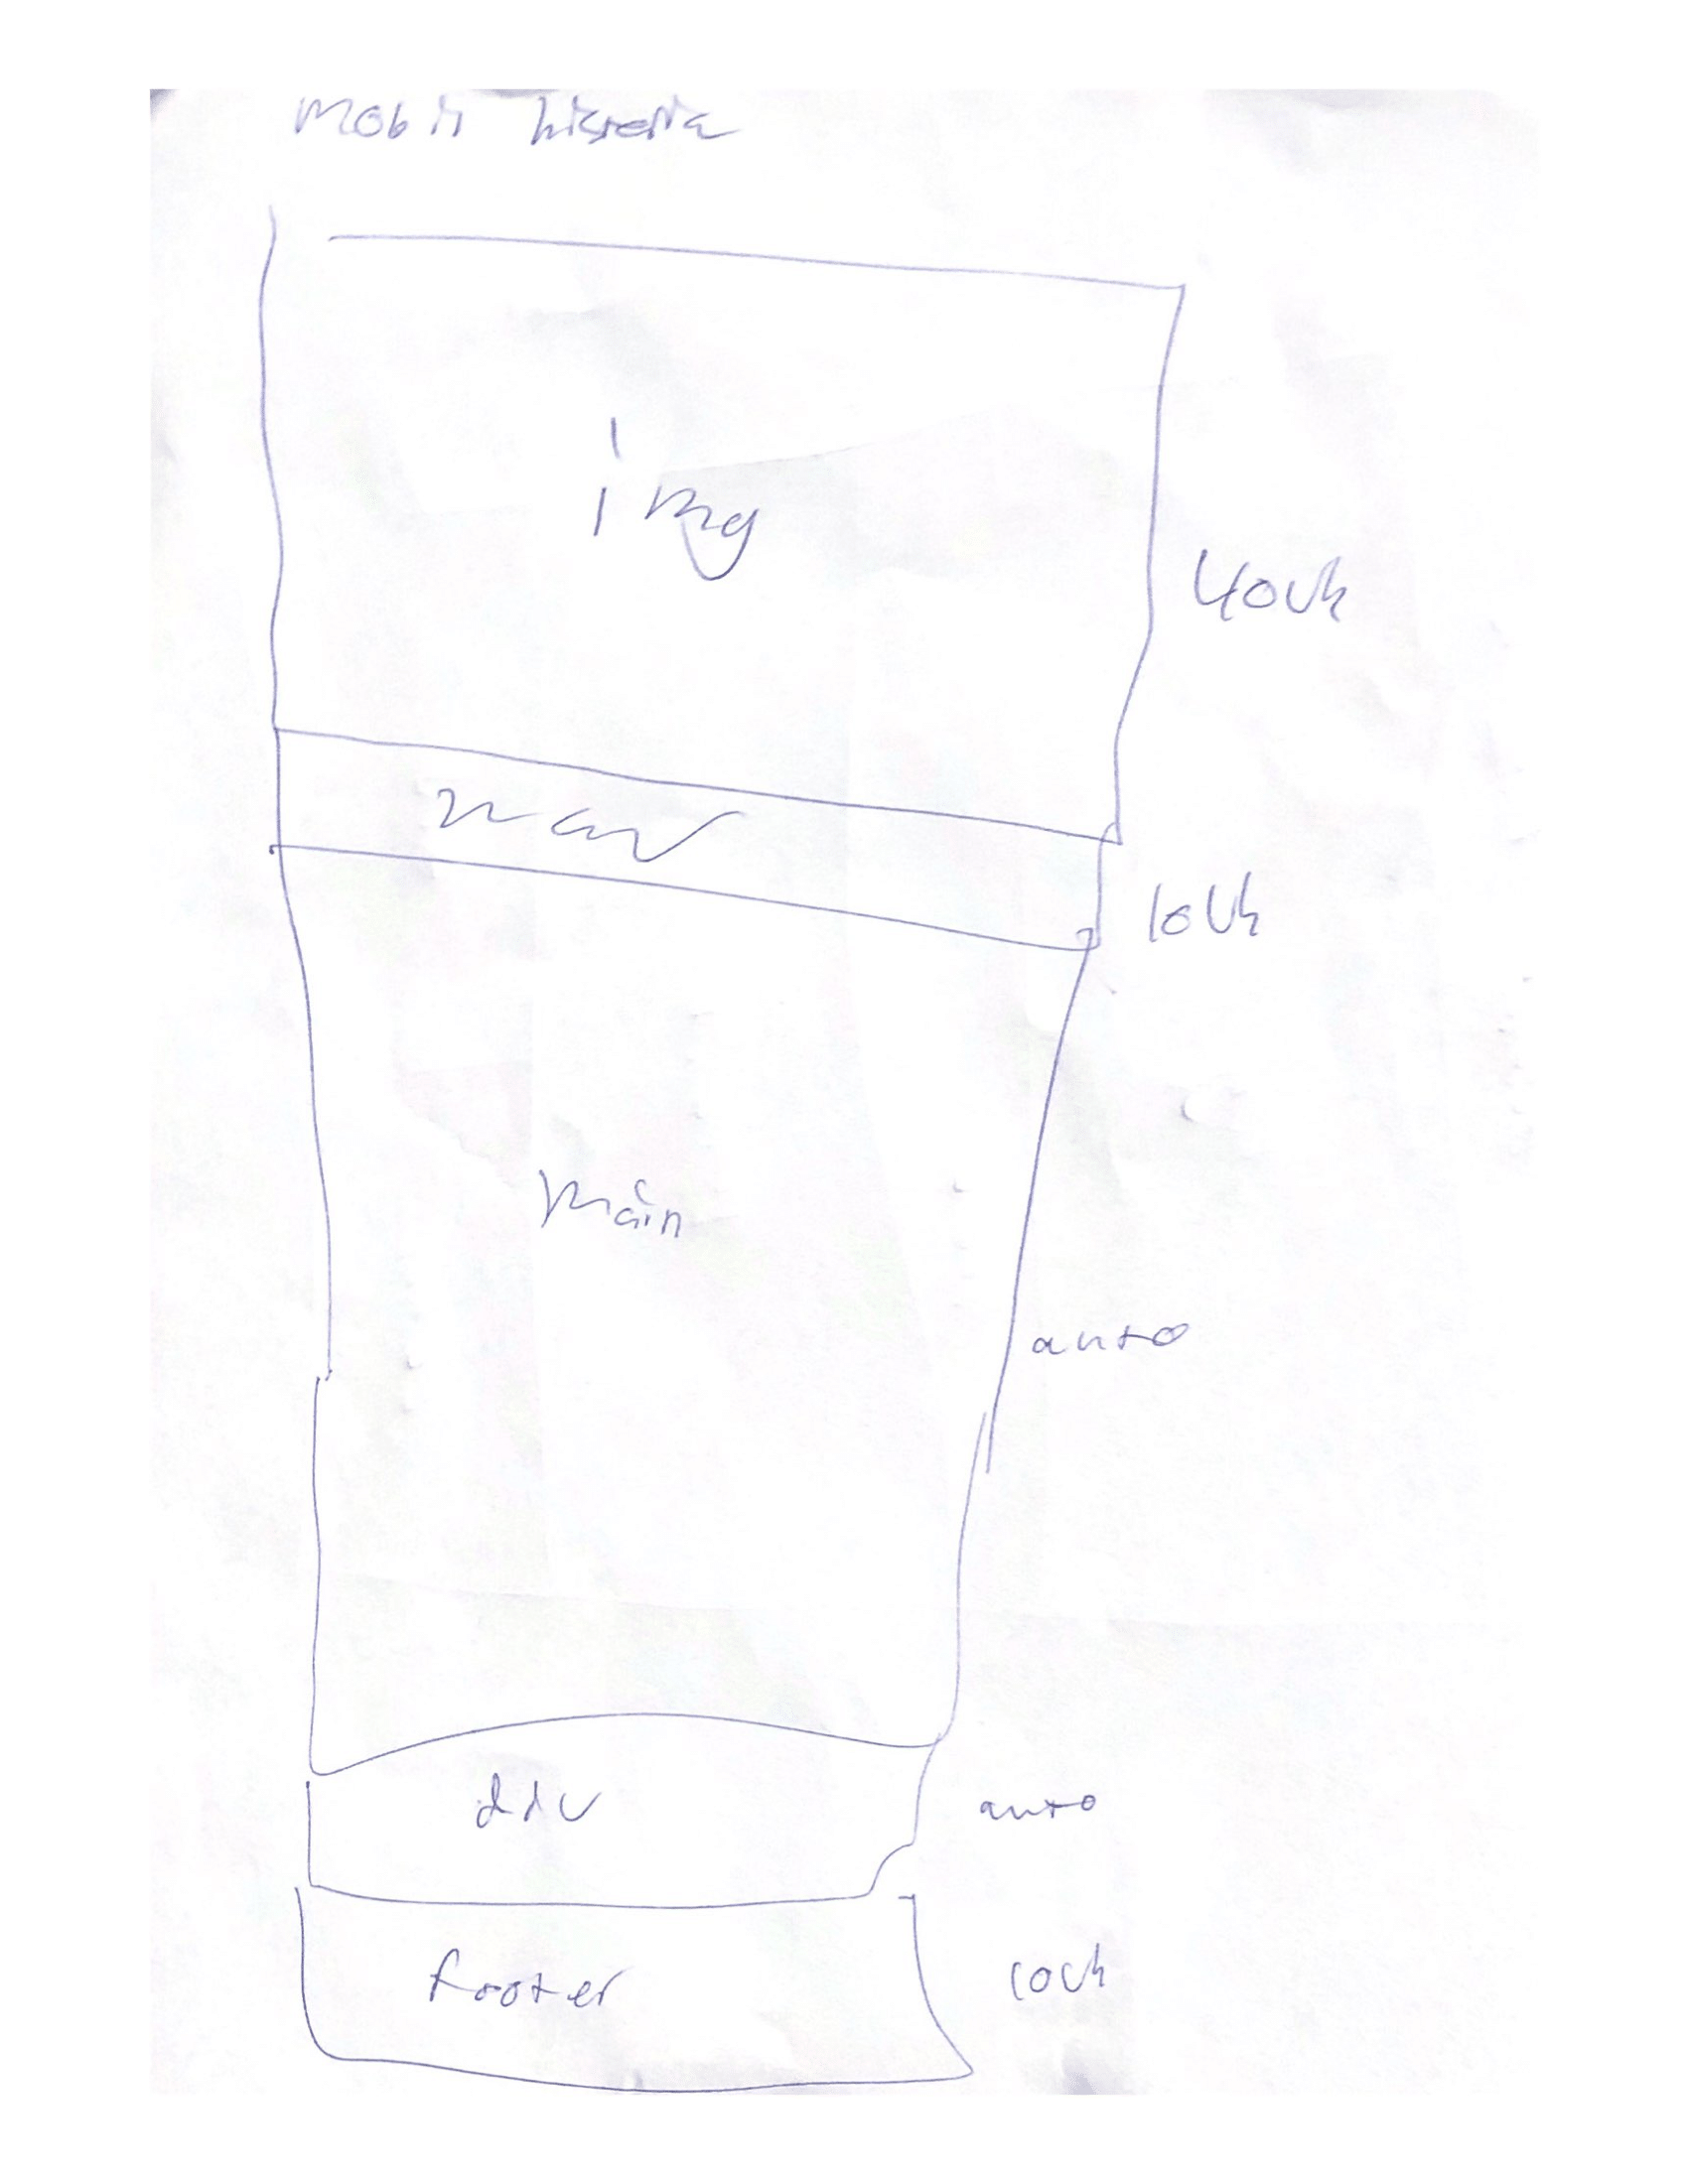 Mobil historia
img
40vh
nav
10vh
main
auto
div
auto
footer
10vh